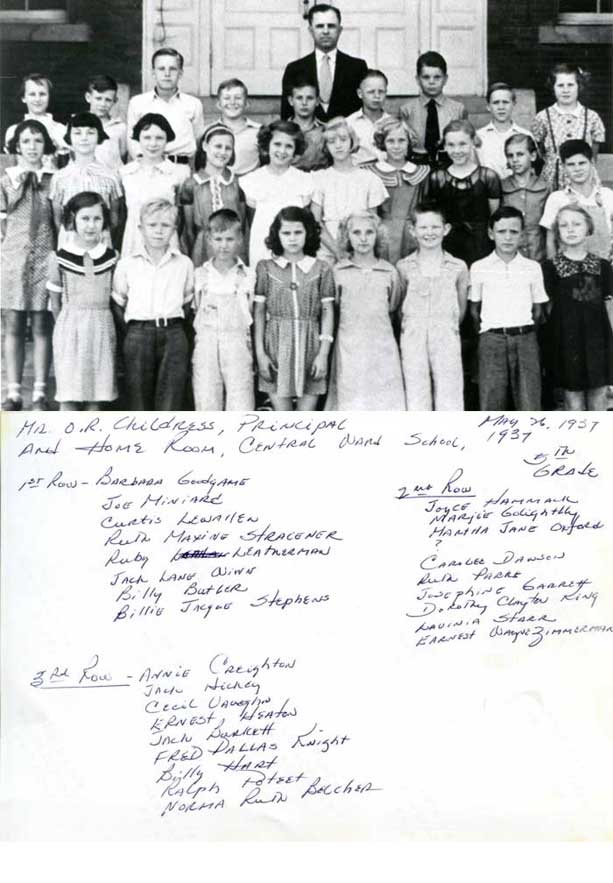 Mr. O.R. Childress, Principal
May 26, 1937
And Home Room, Central Ward School, 1937
5th Grade
1st Row - Barbara Goodgame
Joe Miniard
Curtis Lewallen
Ruth Maxine Stracener
Ruby Leatherman
Jack Lane Winn
Billy Butler
Billie Jacque Stephens
2nd Row
Joyce Hammack
Marjie Golightly
Martha Jane Oxford
?
Carolee Dawson
Ruth Parke
Josephine Garrett
Dorothy Clayton King
Lavinia Starr
Earnest Wayne Zimmerman
3rd Row - Annie Creighton
Jack Hickey
Cecil Vaughn
Ernest Heaton
Jack Burkett
Fred Dallas Knight
Billy Hart
Ralph Poteet
Norma Ruth Belcher